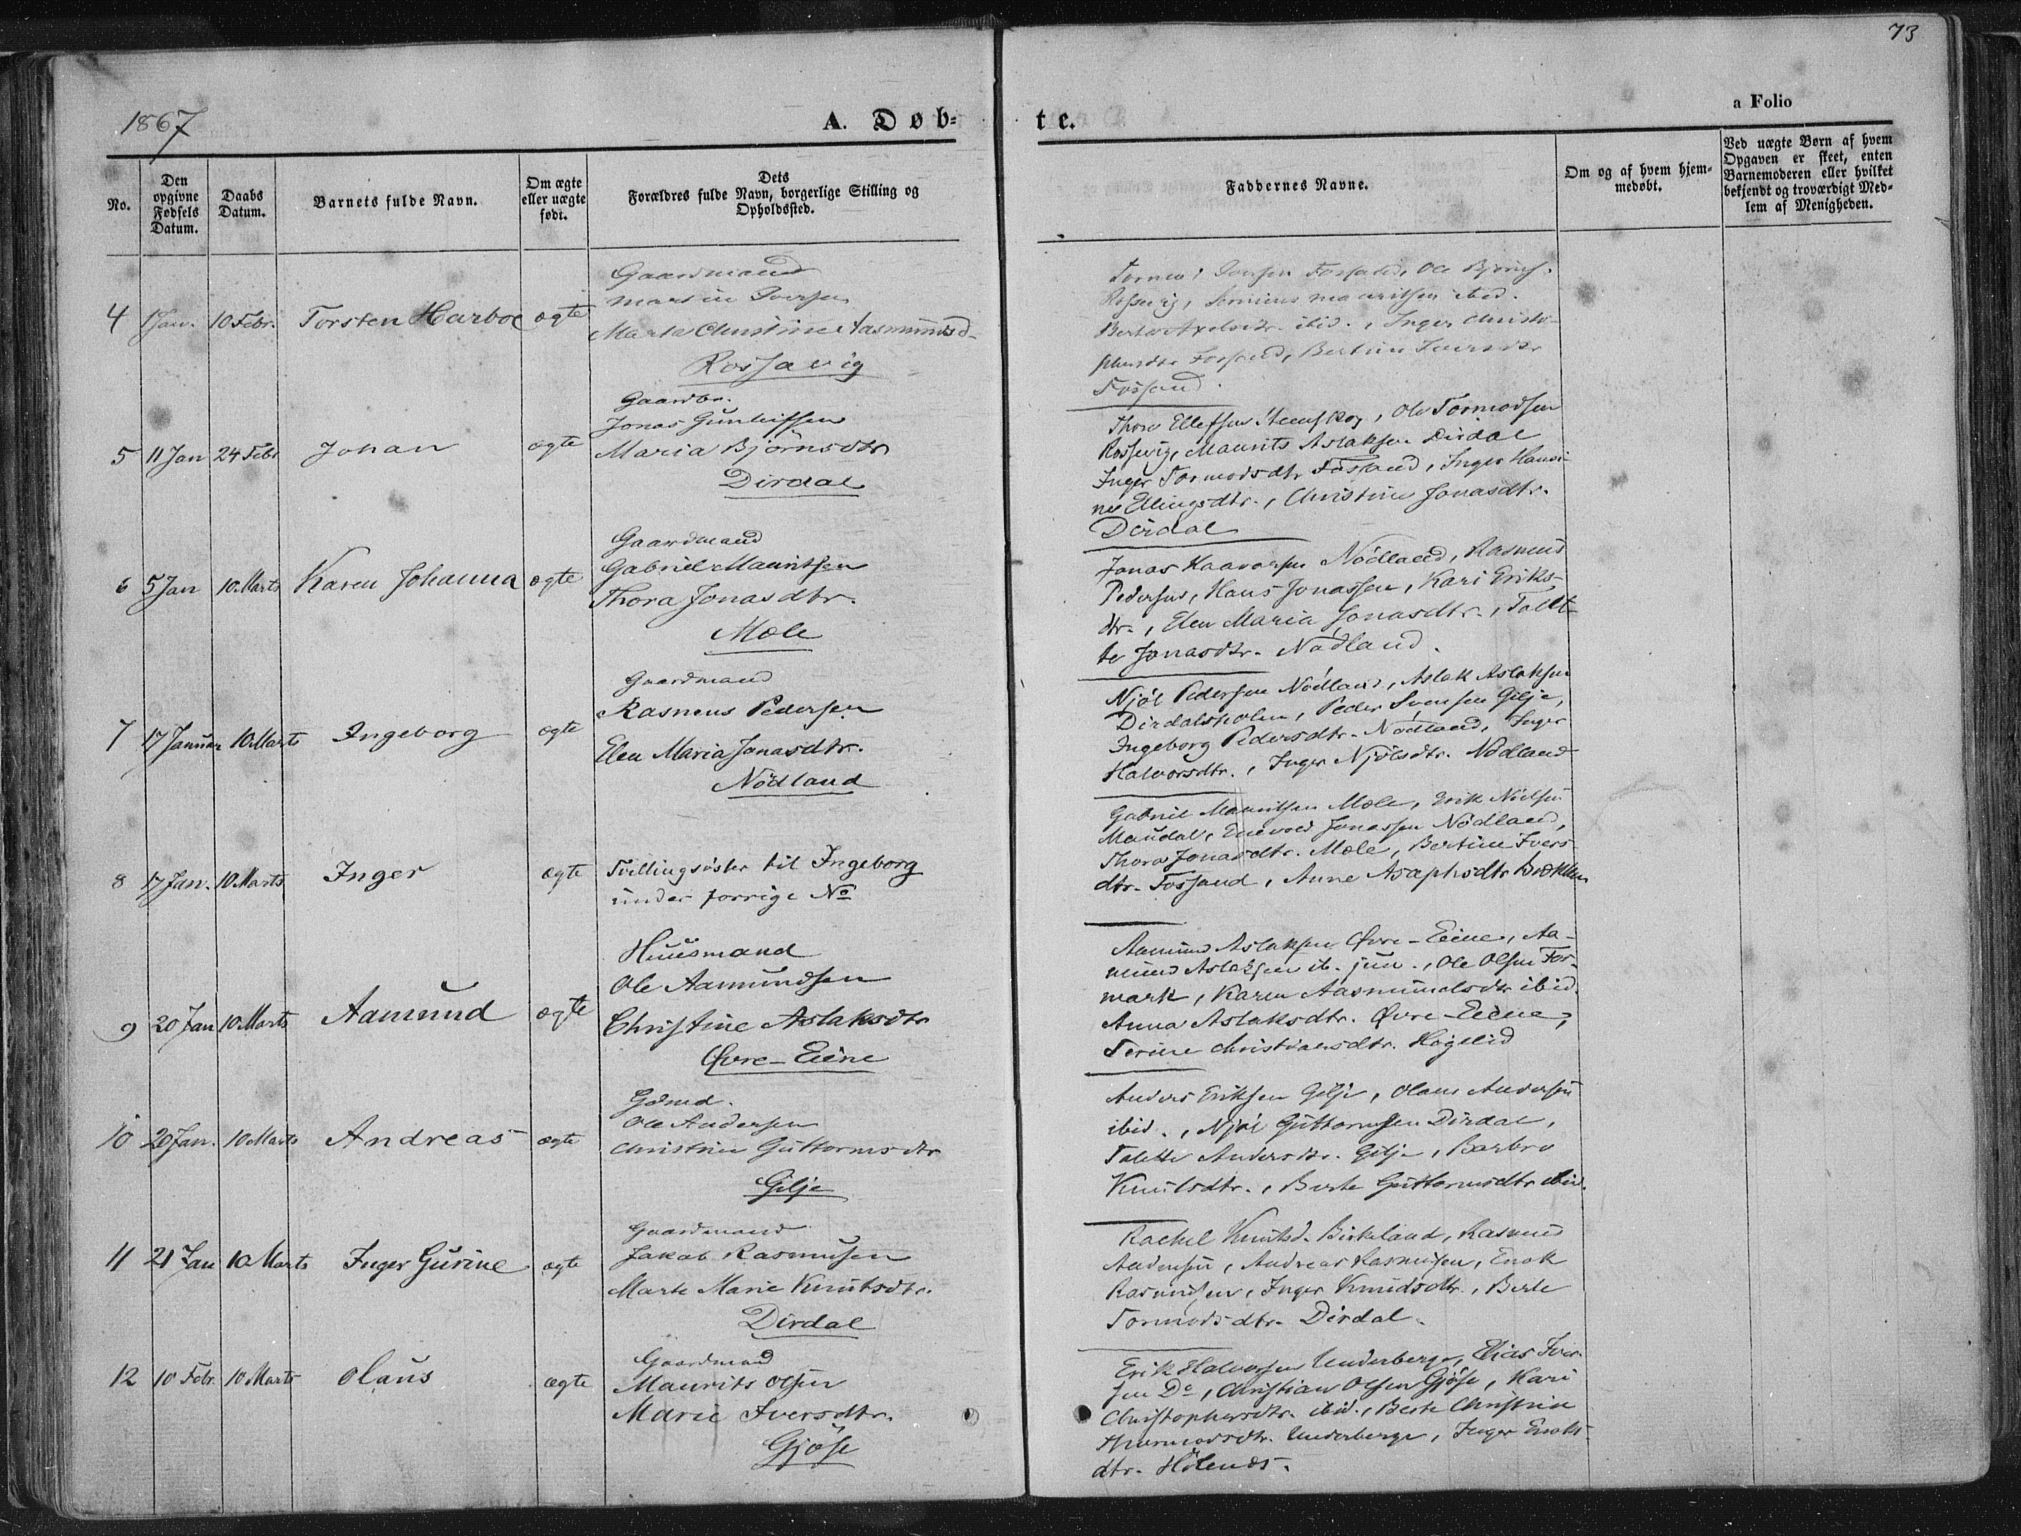 73
1867
A. Døb=
te.
a Folio
No.
Den opgivne Fødsels Datum.
Daabs Datum.
Barnets fulde Navn.
Om ægte eller uægte født.
Dets Forældres fulde Navn, borgerlige Stilling og Opholdssted.
Faddernes Navne.
Om og af hvem hjem-medøbt.
Ved uægte Børn af hvem Opgaven er skeet, enten Barnemoderen eller hvilket bekjendt og troværdigt Med-lem af Menigheden.
4 1 Jan. 10 Febr. Torsten Harboe ægte
Gaardmand
Martin Iversen
Marta Christine Aasmundsd
Rossavig
Fossand, Ole Bjørns.
Rossevig, mauritsen ibid.
ibid., Inger Christo-
phersdtr Fossand, Bertine Iversdtr
Fossand.
5 11 Jan 24 Febr Johan ægte
Gaardbr.
Jonas Gunleiffsen
Maria Bjørnsdtr
Dirdal
Thore Ellefsen, Ole Tormodsen
Rossevig, Maurits Aslaksen Dirdal
Inger Tormodsdtr Fossand, Inger Hansi-
ne Ellingsdtr., Christine Jonasdtr.
Dirdal
6 5 Jan 10 Marts Karen Johanna ægte
Gaardmand
Gabriel Mauritsen
Thora Jonasdtr.
Mæle
Jonas Haavorsen Nödland, Rasmus
Pedersen, Hans Jonassen, Kari Eriks-
dtr., Elen Maria Jonasdtr., Talet-
te Jonasdtr. Nödland.
7 17 Januar 10 Marts Ingeborg ægte
Gaardmand
Rasmus Pedersen
Elen Maria Jonasdtr.
Nödland
Njøl Pedersen Nödland, Aslak Aslaksen
Dirdalsholen, Peder Svensen Gilje,
Ingeborg Pedersdtr. Nödland, Inger
Halvorsdtr., Inger Njölsdtr. Nödland
8 17 Jan. 10 Marts Inger ægte
Tvillingsöster til Ingeborg
under forrige No
Gabriel Mauritsen Mæle, Erik Nielsen
Maudal, Enevold Jonassen Nödland,
Thora Jonasdtr. Mæle, Bertine Ivers
dtr. Fossand, Anne Asaphsdtr
9 20 Jan 10 Marts Aamund ægte
Huusmand
Ole Aamundsen
Christine Aslaksdtr
Øvre-Eiene
Aamund Aslaksen Øvre-Eiene, Aa-
mund Aslaksen ib. jun., Ole Olsen For-
mark, Karen Aasmundsdtr ibid.
Anna Aslaksdtr. Øvre-Eiene,
Serine Christiansdtr. Høgelid
10 20 Jan. 10 Marts Andreas ægte
Gdmd.
Ole Andersen
Christine Guttormsdtr
Gilje
Anders Eriksen Gilje, Olaus Andersen
ibid., Njøl Guttormsen Dirdal,
Talette Andersdtr. Gilje, Barbro
Knutsdtr., Berte Guttormsdtr ibid.
11 21 Jan 10 Marts Inger Gurine ægte
Gaardmand
Jakob Rasmusen
Marte Marie Knutsdtr.
Dirdal
Rachel Knutsd. Birkeland, Rasmus
Andersen, Andreas Rasmusen, Enok
Rasmusen, Inger Knudsdtr., Berte
Tormodsdtr. Dirdal.
12 10 Febr. 10 Marts Olaus ægte
Gaardmand
Maurits Olsen
Marie Iversdtr.
Gjöse
Erik Halvorsen Underberge, Elias Iver-
sen Do, Christian Olsen Gjöse, Kari
Christophersdtr. ibid., Berte Christine
Thormodsdtr. Underberge, Inger Enoks-
dtr.